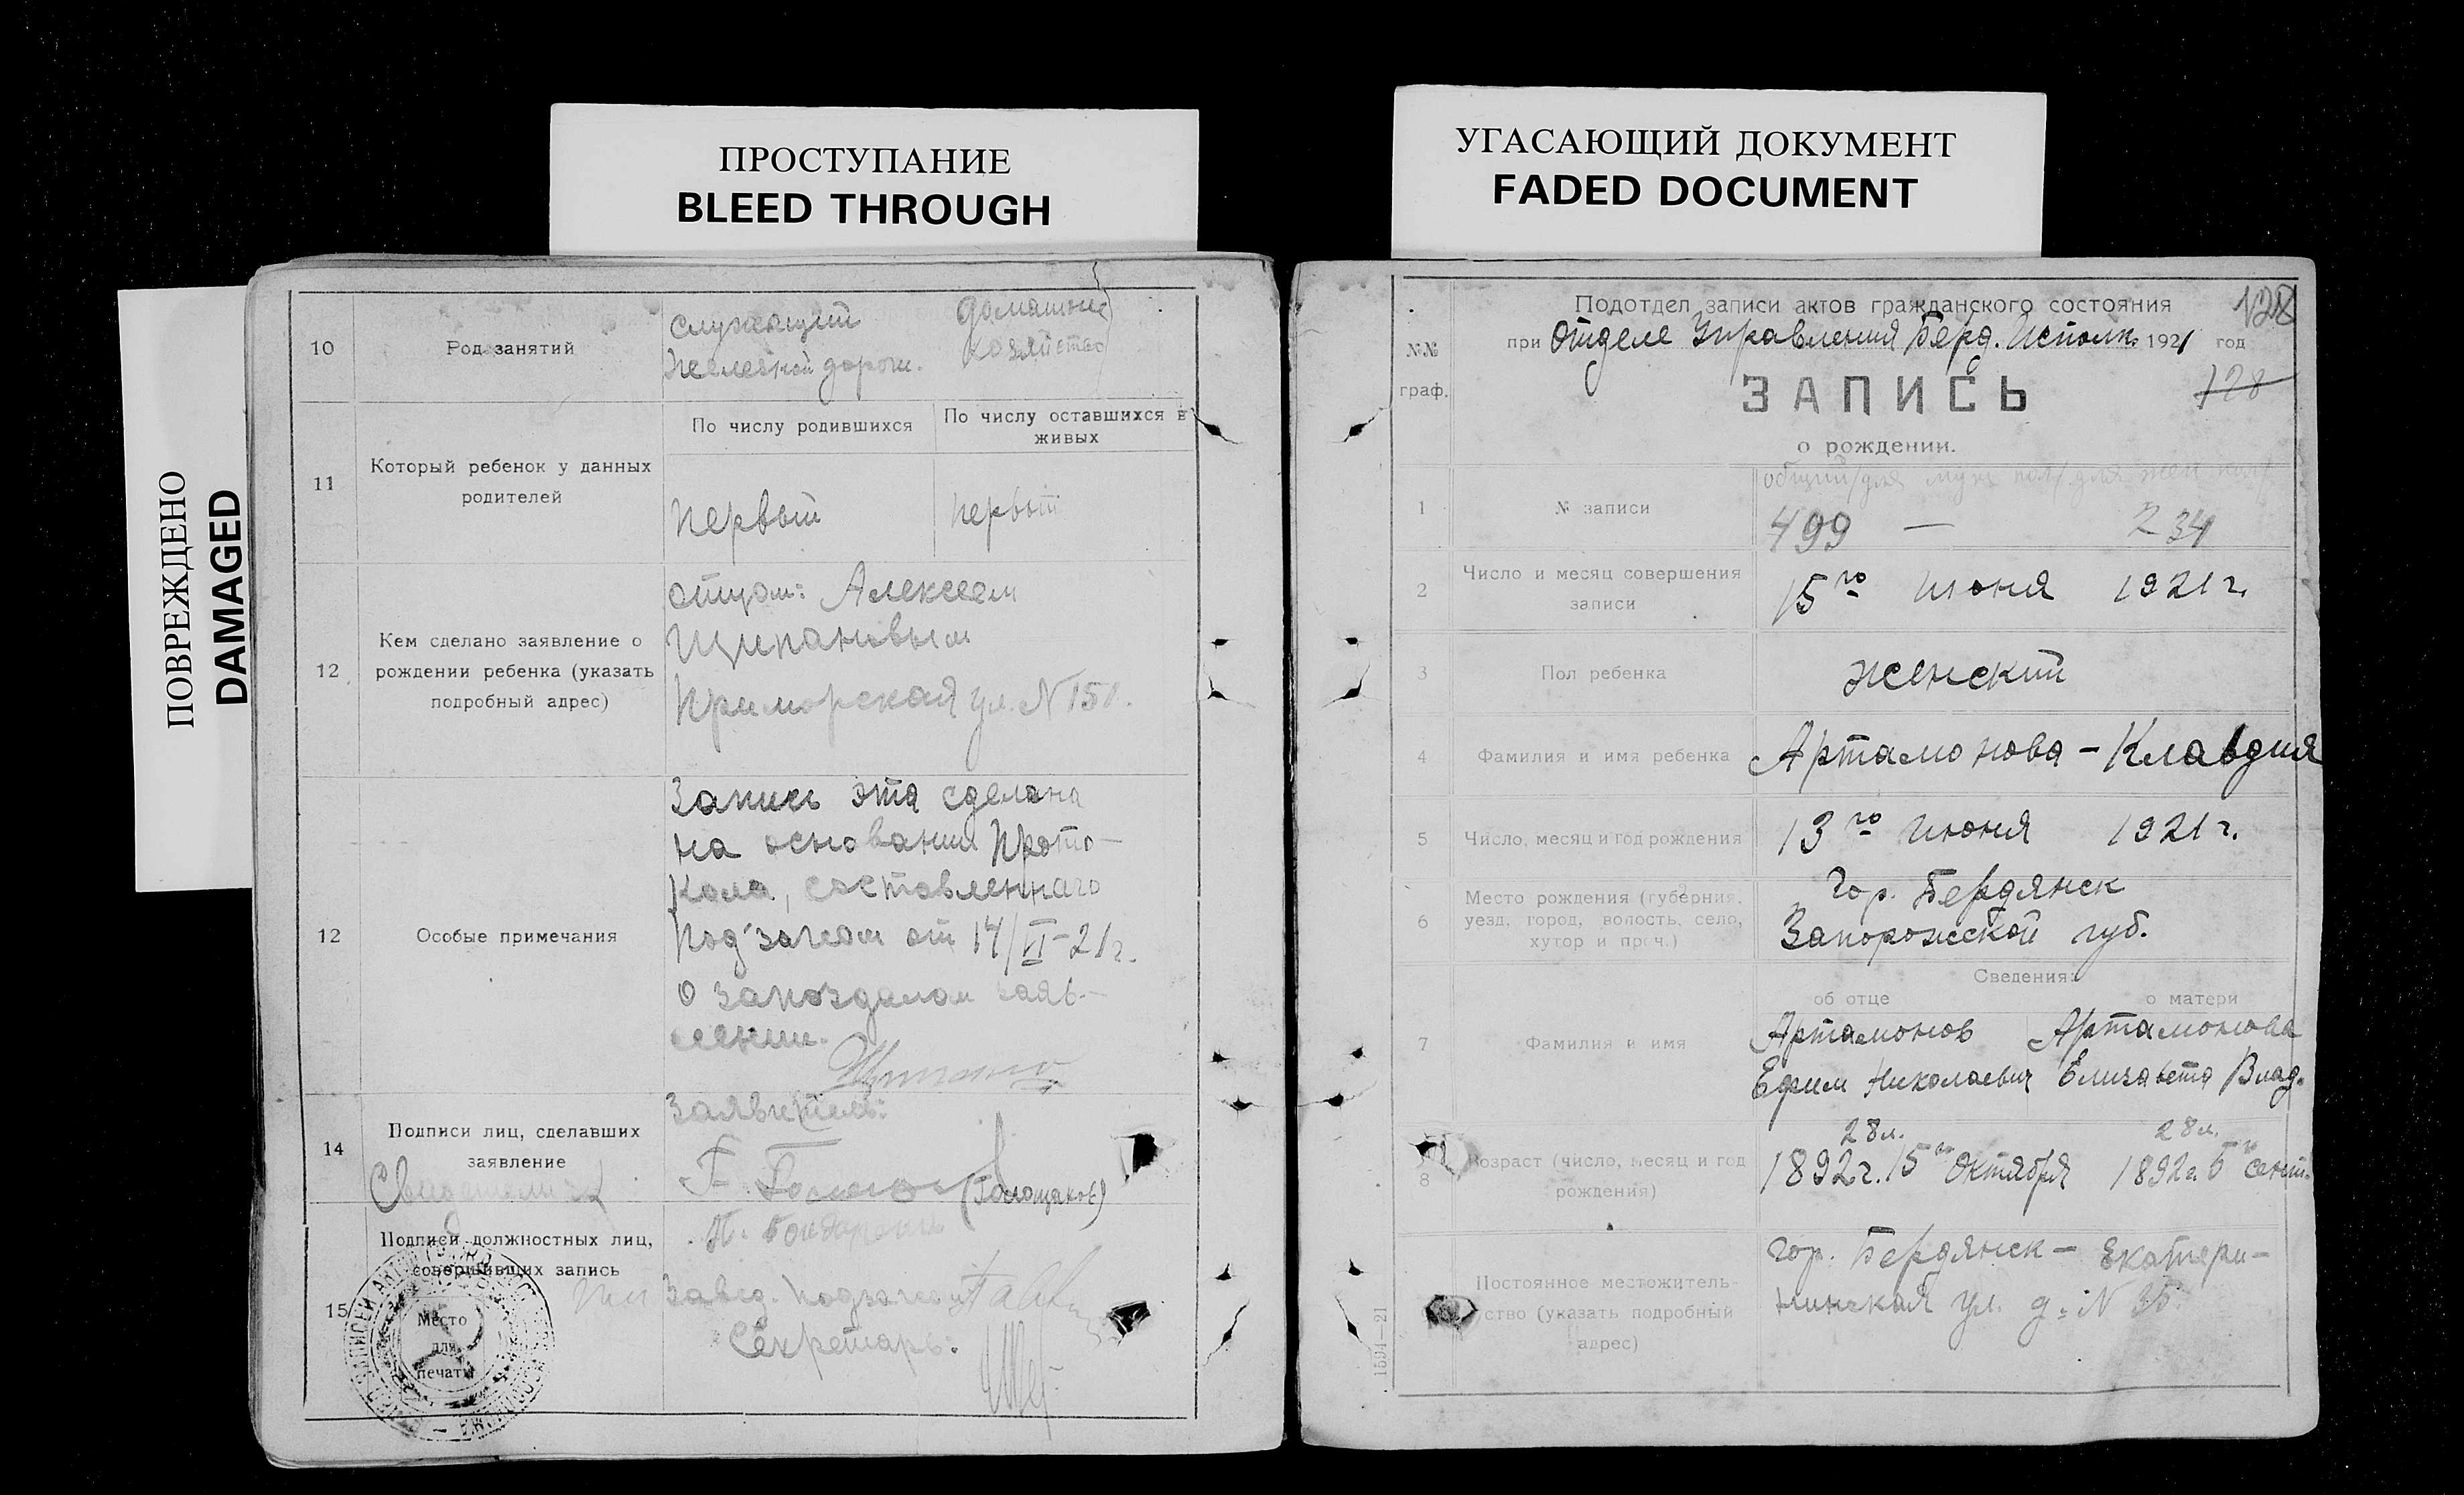 ПРОСТУПАНИЕ
BLEED THROUGH
УГАСАЮЩИЙ ДОКУМЕНТ
FADED DOCUMENT
ПОВРЕЖДЕНО
DAMAGED
10
Род занятий
служащий
железной дорог.
домашнее
хозяйство
11
Который ребенок у данных
родителей
По числу родившихся
По числу оставшихся в
живых
первый
первый
12
Кем сделано заявление о
рождении ребенка (указать
подробный адрес)
отцом: Алексеем
Щипановым
Приморская ул. N 151.
12
Особые примечания
Запись эта сделана
на основании прото-
кола, составленнаго
Под'загсом от 14/VI-21г.
о запоздалом заяв-
лении.
14
Подписи лиц, сделавших
заявление
Свидетели
Заявитель:
(Голощапов)
15
Подписи должностных лиц,
совершивших запись
П. Бондаренко
Завед. подзагсом
Секретарь:
Место
для
печати
№№
граф.
Подотдел записи актов гражданского состояния
128
при Отделе Управления Берд. Исполк. 1921 год
ЗАПИСЬ
128
о рождении.
1
№ записи
общий/для муж пол/для жен пол/
499 — 234
2
Число и месяц совершения
записи
15го июня 1921 г.
3
Пол ребенка
женский
4
Фамилия и имя ребенка
Артамонова - Клавдия
5
Число, месяц и год рождения
13го июня 1921 г.
6
Место рождения (губерния,
уезд, город, волость, село,
хутор и проч.)
Гор. Бердянск
Запорожской губ.
Сведения:
об отце
о матери
7
Фамилия и имя
Артамонов
Ефим Николаевич
Артамонова
Елизавета Влад.
8
Возраст (число, месяц и год
рождения)
28 л.
1892 г. 15го Октября
28 л.
1892 г. 5го сент.
Постоянное местожитель-
ство (указать подробный
адрес)
Гор. Бердянск - Екатери-
нинская ул. д. N 35
1591—21